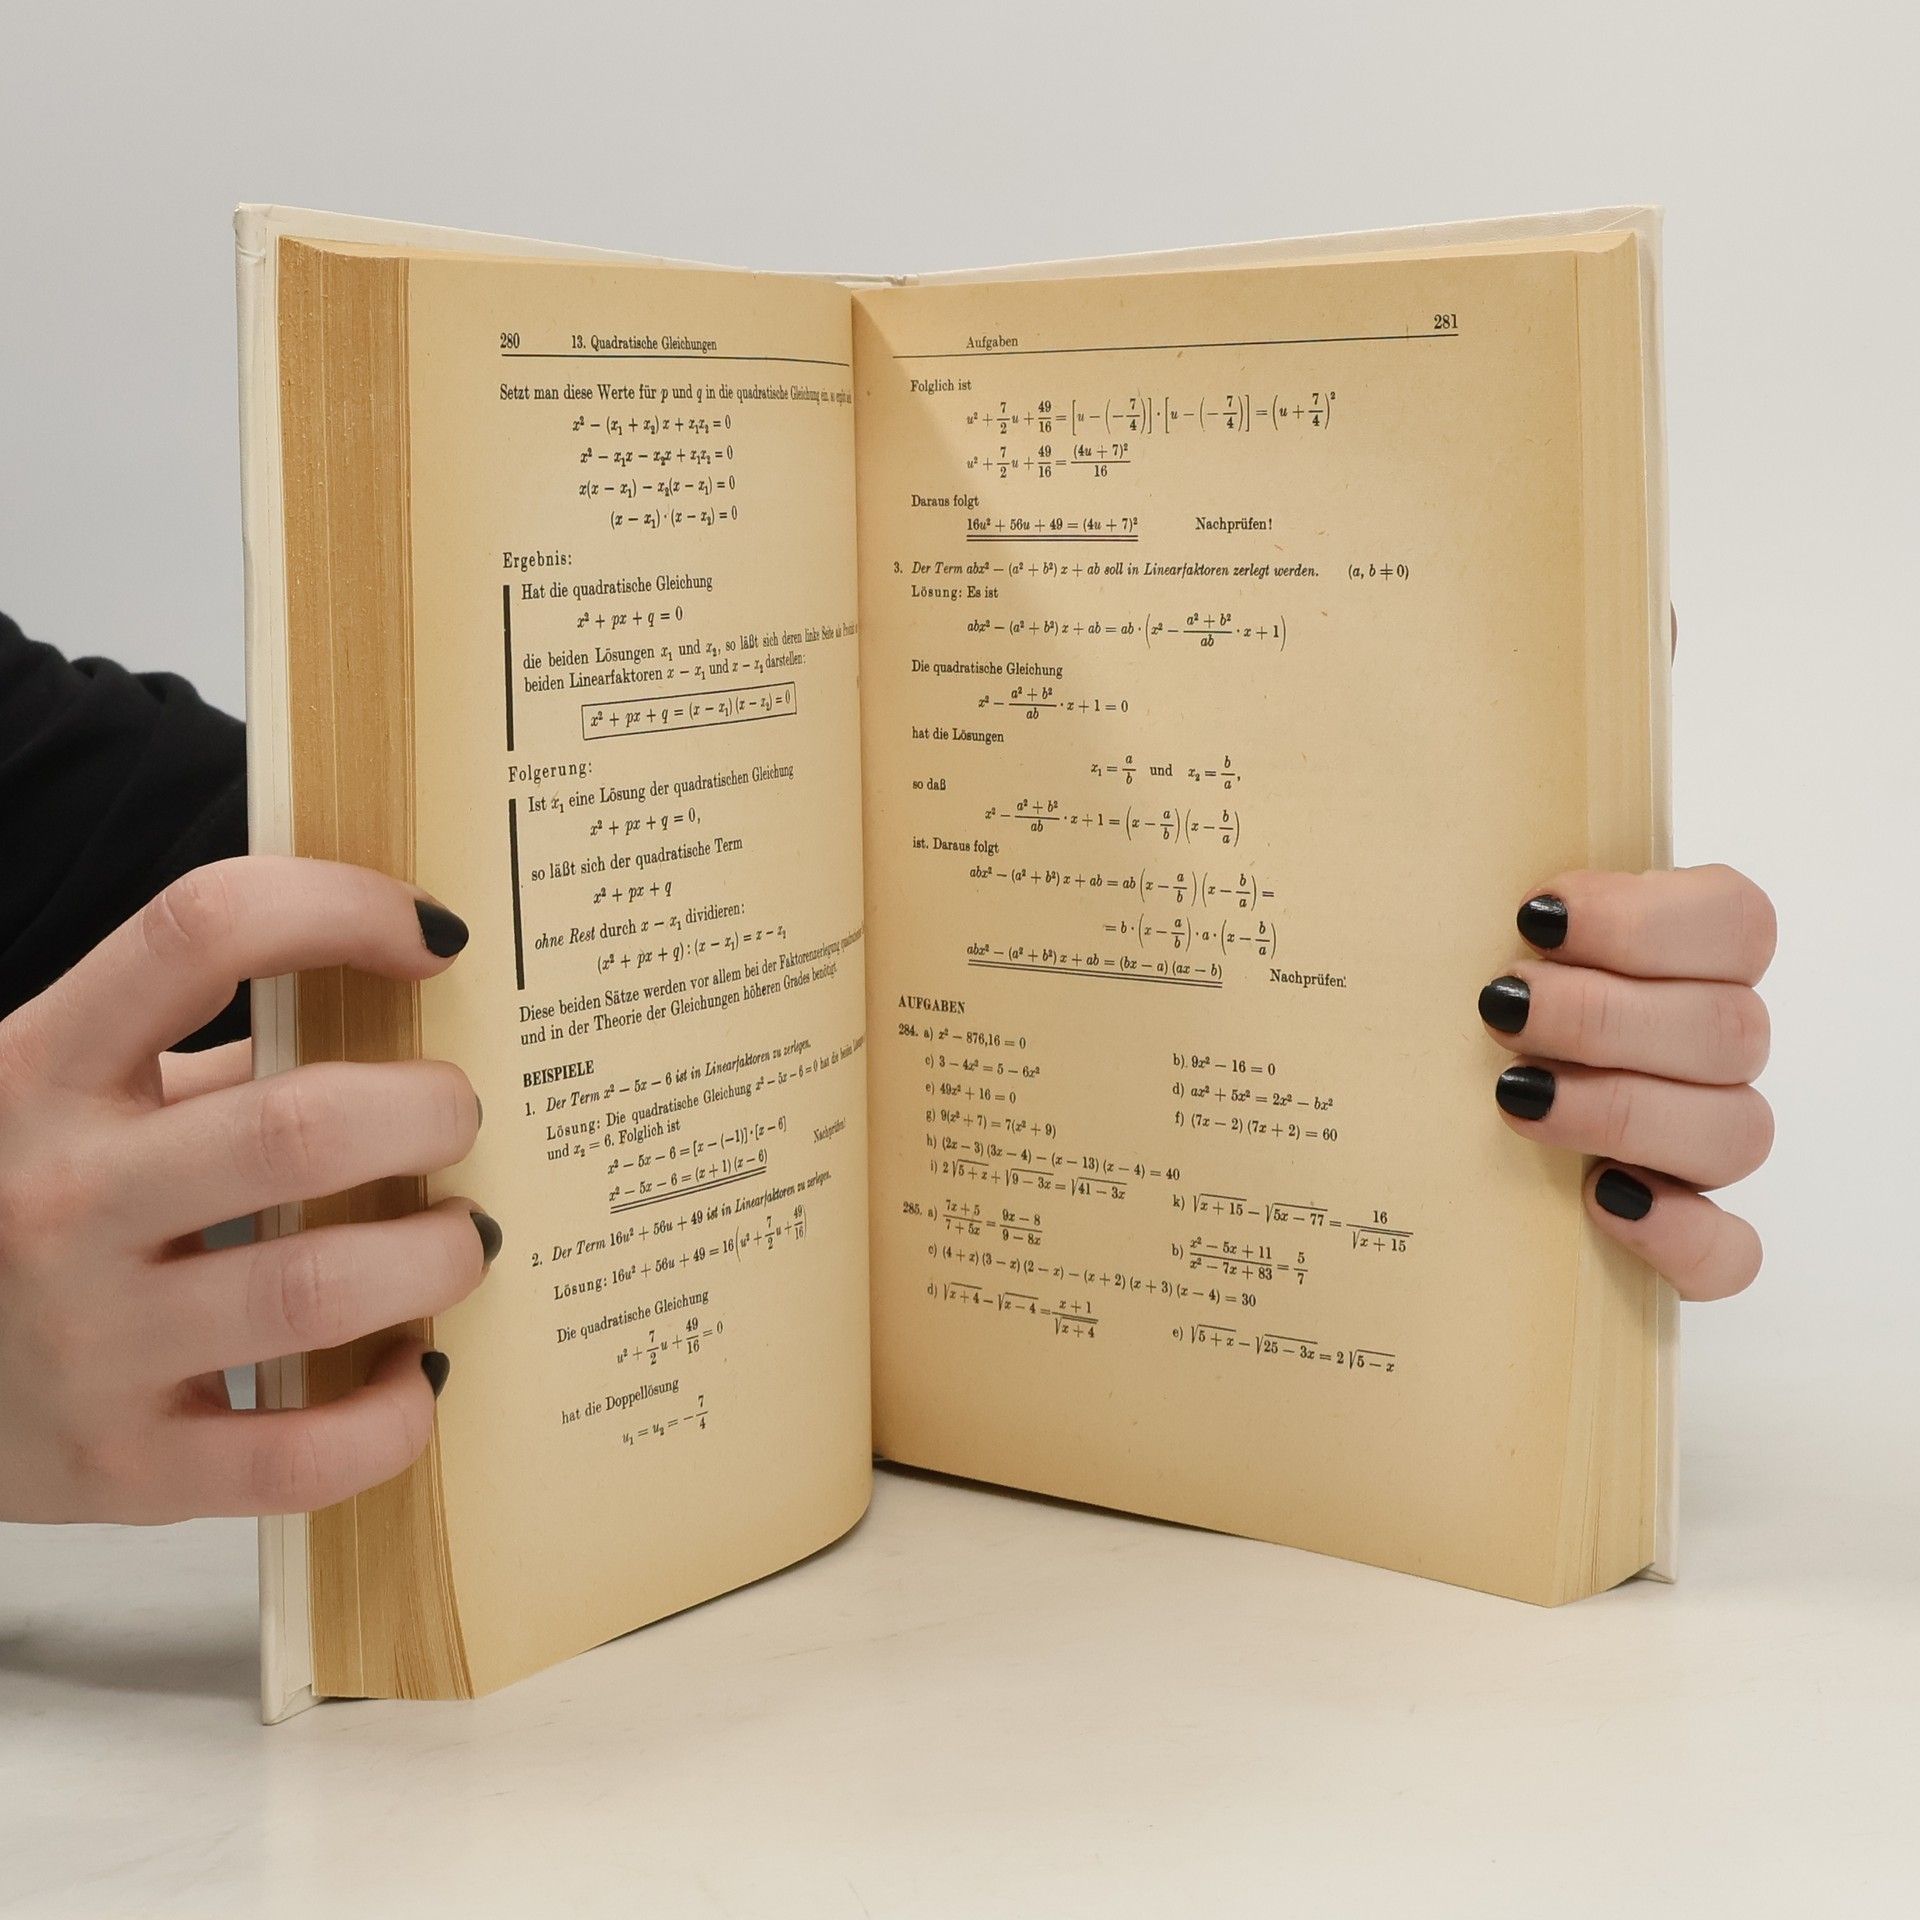 280 13. Quadratische Gleichungen
Setzt man diese Werte für p und q in die quadratische Gleichung ein, so ergibt
x² − (x₁ + x₂) x + x₁x₂ = 0
x² − x₁x − x₂x + x₁x₂ = 0
x(x − x₁) − x₂(x − x₁) = 0
(x − x₁) · (x − x₂) = 0
Ergebnis:
Hat die quadratische Gleichung
x² + px + q = 0
die beiden Lösungen x₁ und x₂, so läßt sich deren linke Seite als
beiden Linearfaktoren x − x₁ und x − x₂ darstellen:
x² + px + q = (x − x₁) (x − x₂) = 0
Folgerung:
Ist x₁ eine Lösung der quadratischen Gleichung
x² + px + q = 0,
so läßt sich der quadratische Term
x² + px + q
ohne Rest durch x − x₁ dividieren:
(x² + px + q) : (x − x₁) = x − x₁
Diese beiden Sätze werden vor allem bei der Faktorenzerlegung
und in der Theorie der Gleichungen höheren Grades benötigt.
BEISPIELE
1. Der Term x² − 5x − 6 ist in Linearfaktoren zu zerlegen.
Lösung: Die quadratische Gleichung x² − 5x − 6 = 0 hat die beiden
und x₂ = 6. Folglich ist
x² − 5x − 6 = [x − (−1)] · [x − 6]
x² − 5x − 6 = (x + 1) (x − 6) Nachprüfen!
2. Der Term 16u² + 56u + 49 ist in Linearfaktoren zu zerlegen.
Lösung: 16u² + 56u + 49 = 16(u² + 7/2 u + 49/16)
Die quadratische Gleichung
u² + 7/2 u + 49/16 = 0
hat die Doppellösung
u₁ = u₂ = − 7/4
Aufgaben 281
Folglich ist
u² + 7/2 u + 49/16 = [u − (− 7/4)] · [u − (− 7/4)] = (u + 7/4)²
u² + 7/2 u + 49/16 = (4u + 7)²/16
Daraus folgt
16u² + 56u + 49 = (4u + 7)² Nachprüfen!
3. Der Term abx² − (a² + b²) x + ab soll in Linearfaktoren zerlegt werden. (a, b ≠ 0)
Lösung: Es ist
abx² − (a² + b²) x + ab = ab · (x² − (a² + b²)/ab · x + 1)
Die quadratische Gleichung
x² − (a² + b²)/ab · x + 1 = 0
hat die Lösungen
x₁ = a/b und x₂ = b/a,
so daß
x² − (a² + b²)/ab · x + 1 = (x − a/b) (x − b/a)
ist. Daraus folgt
abx² − (a² + b²) x + ab = ab (x − a/b) (x − b/a) =
= b · (x − a/b) · a · (x − b/a)
abx² − (a² + b²) x + ab = (bx − a) (ax − b) Nachprüfen!
AUFGABEN
284. a) x² − 876,16 = 0 b) 9x² − 16 = 0
c) 3 − 4x² = 5 − 6x² d) ax² + 5x² = 2x² − bx²
e) 49x² + 16 = 0 f) (7x − 2) (7x + 2) = 60
g) 9(x² + 7) = 7(x² + 9)
h) (2x − 3) (3x − 4) − (x − 13) (x − 4) = 40
i) 2 √(5 + x) + √(9 − 3x) = √(41 − 3x) k) √(x + 15) − √(5x − 77) = 16/√(x + 15)
285. a) (7x + 5)/(7 + 5x) = (9x − 8)/(9 − 8x) b) (x² − 5x + 11)/(x² − 7x + 83) = 5/7
c) (4 + x) (3 − x) (2 − x) − (x + 2) (x + 3) (x − 4) = 30
d) √(x + 4) − √(x − 4) = (x + 1)/√(x + 4) e) √(5 + x) − √(25 − 3x) = 2 √(5 − x)